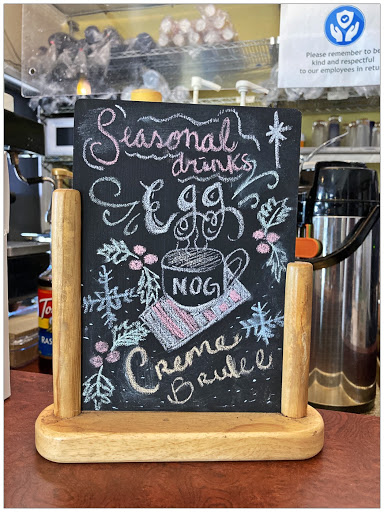 Please remember to be
kind and respectful
to our employees in retu
Seasonal
drinks
Egg
NOG
Creme
Brulee
To
RAS